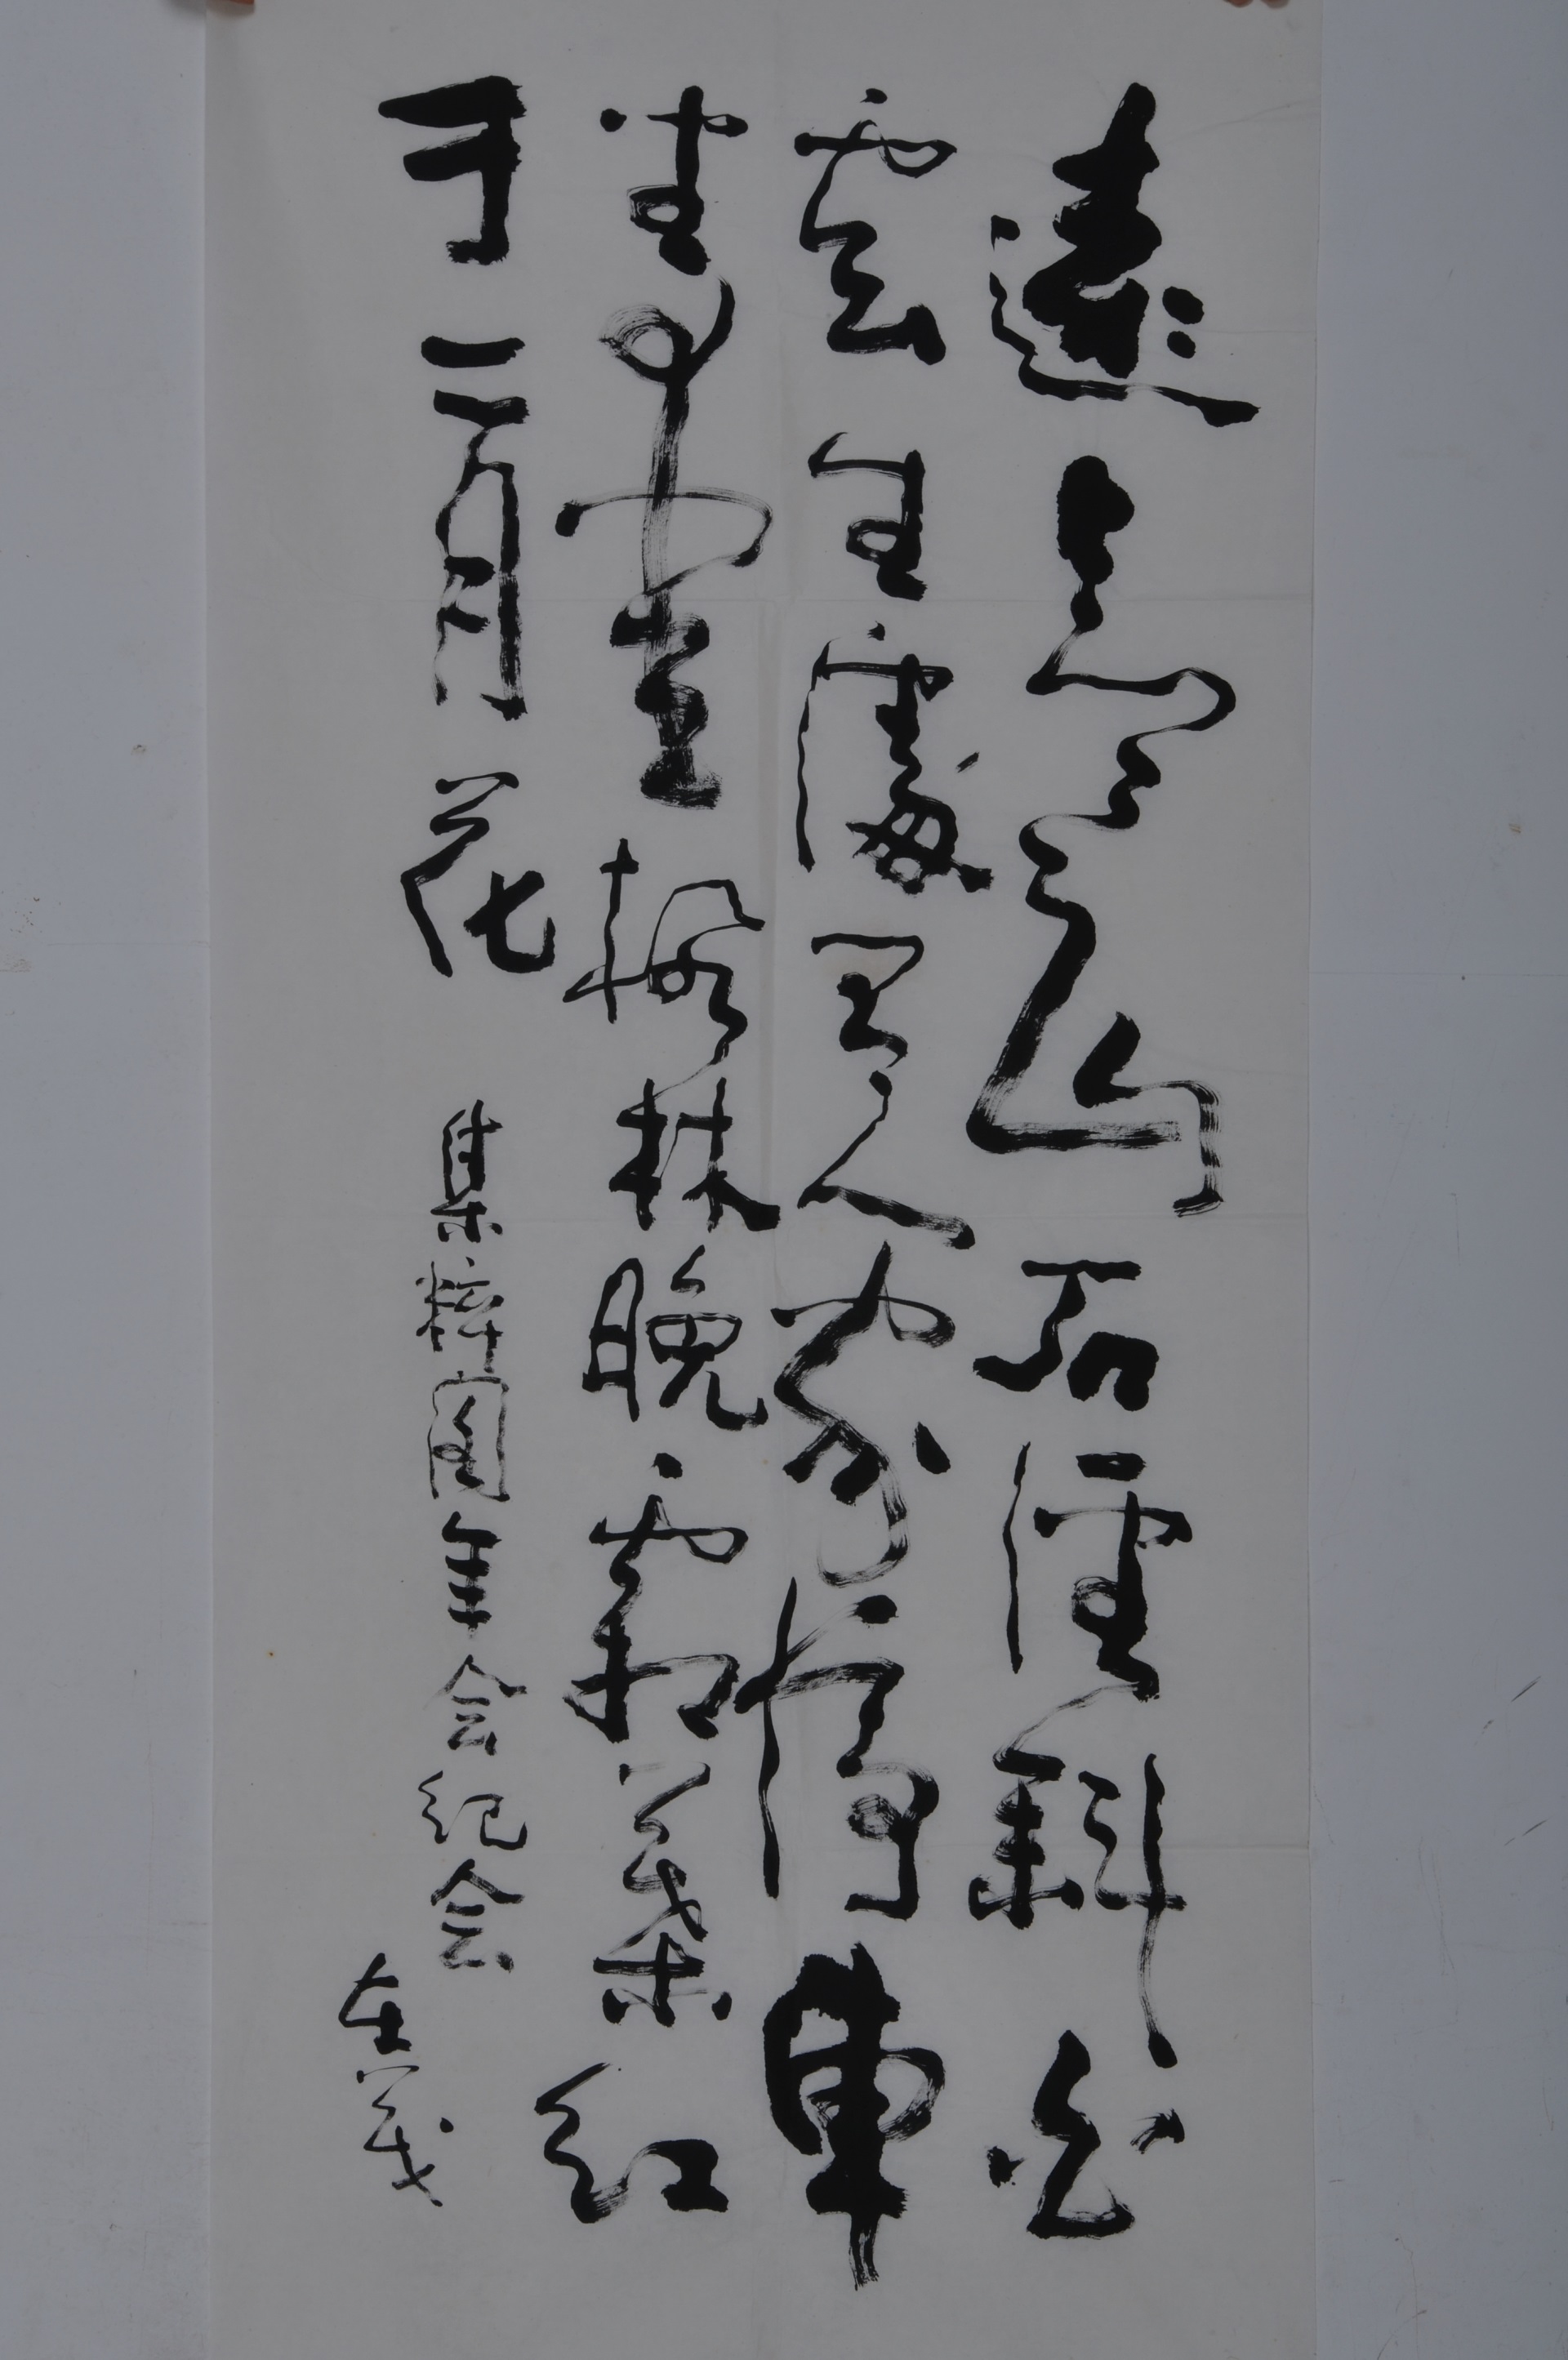 遠上寒山石徑斜白
雲生處有人家停車
坐愛楓林晚霜葉紅
于二月花 集粹阁年会纪念
在義